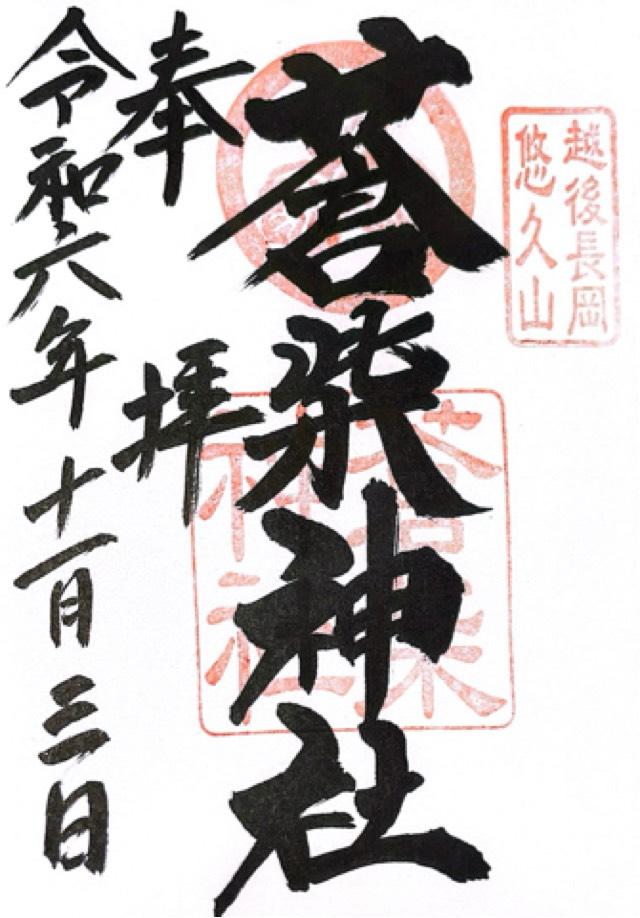 越後長岡
悠久山
蒼柴神社
蒼柴
神社
奉拝
令和六年十一月三日